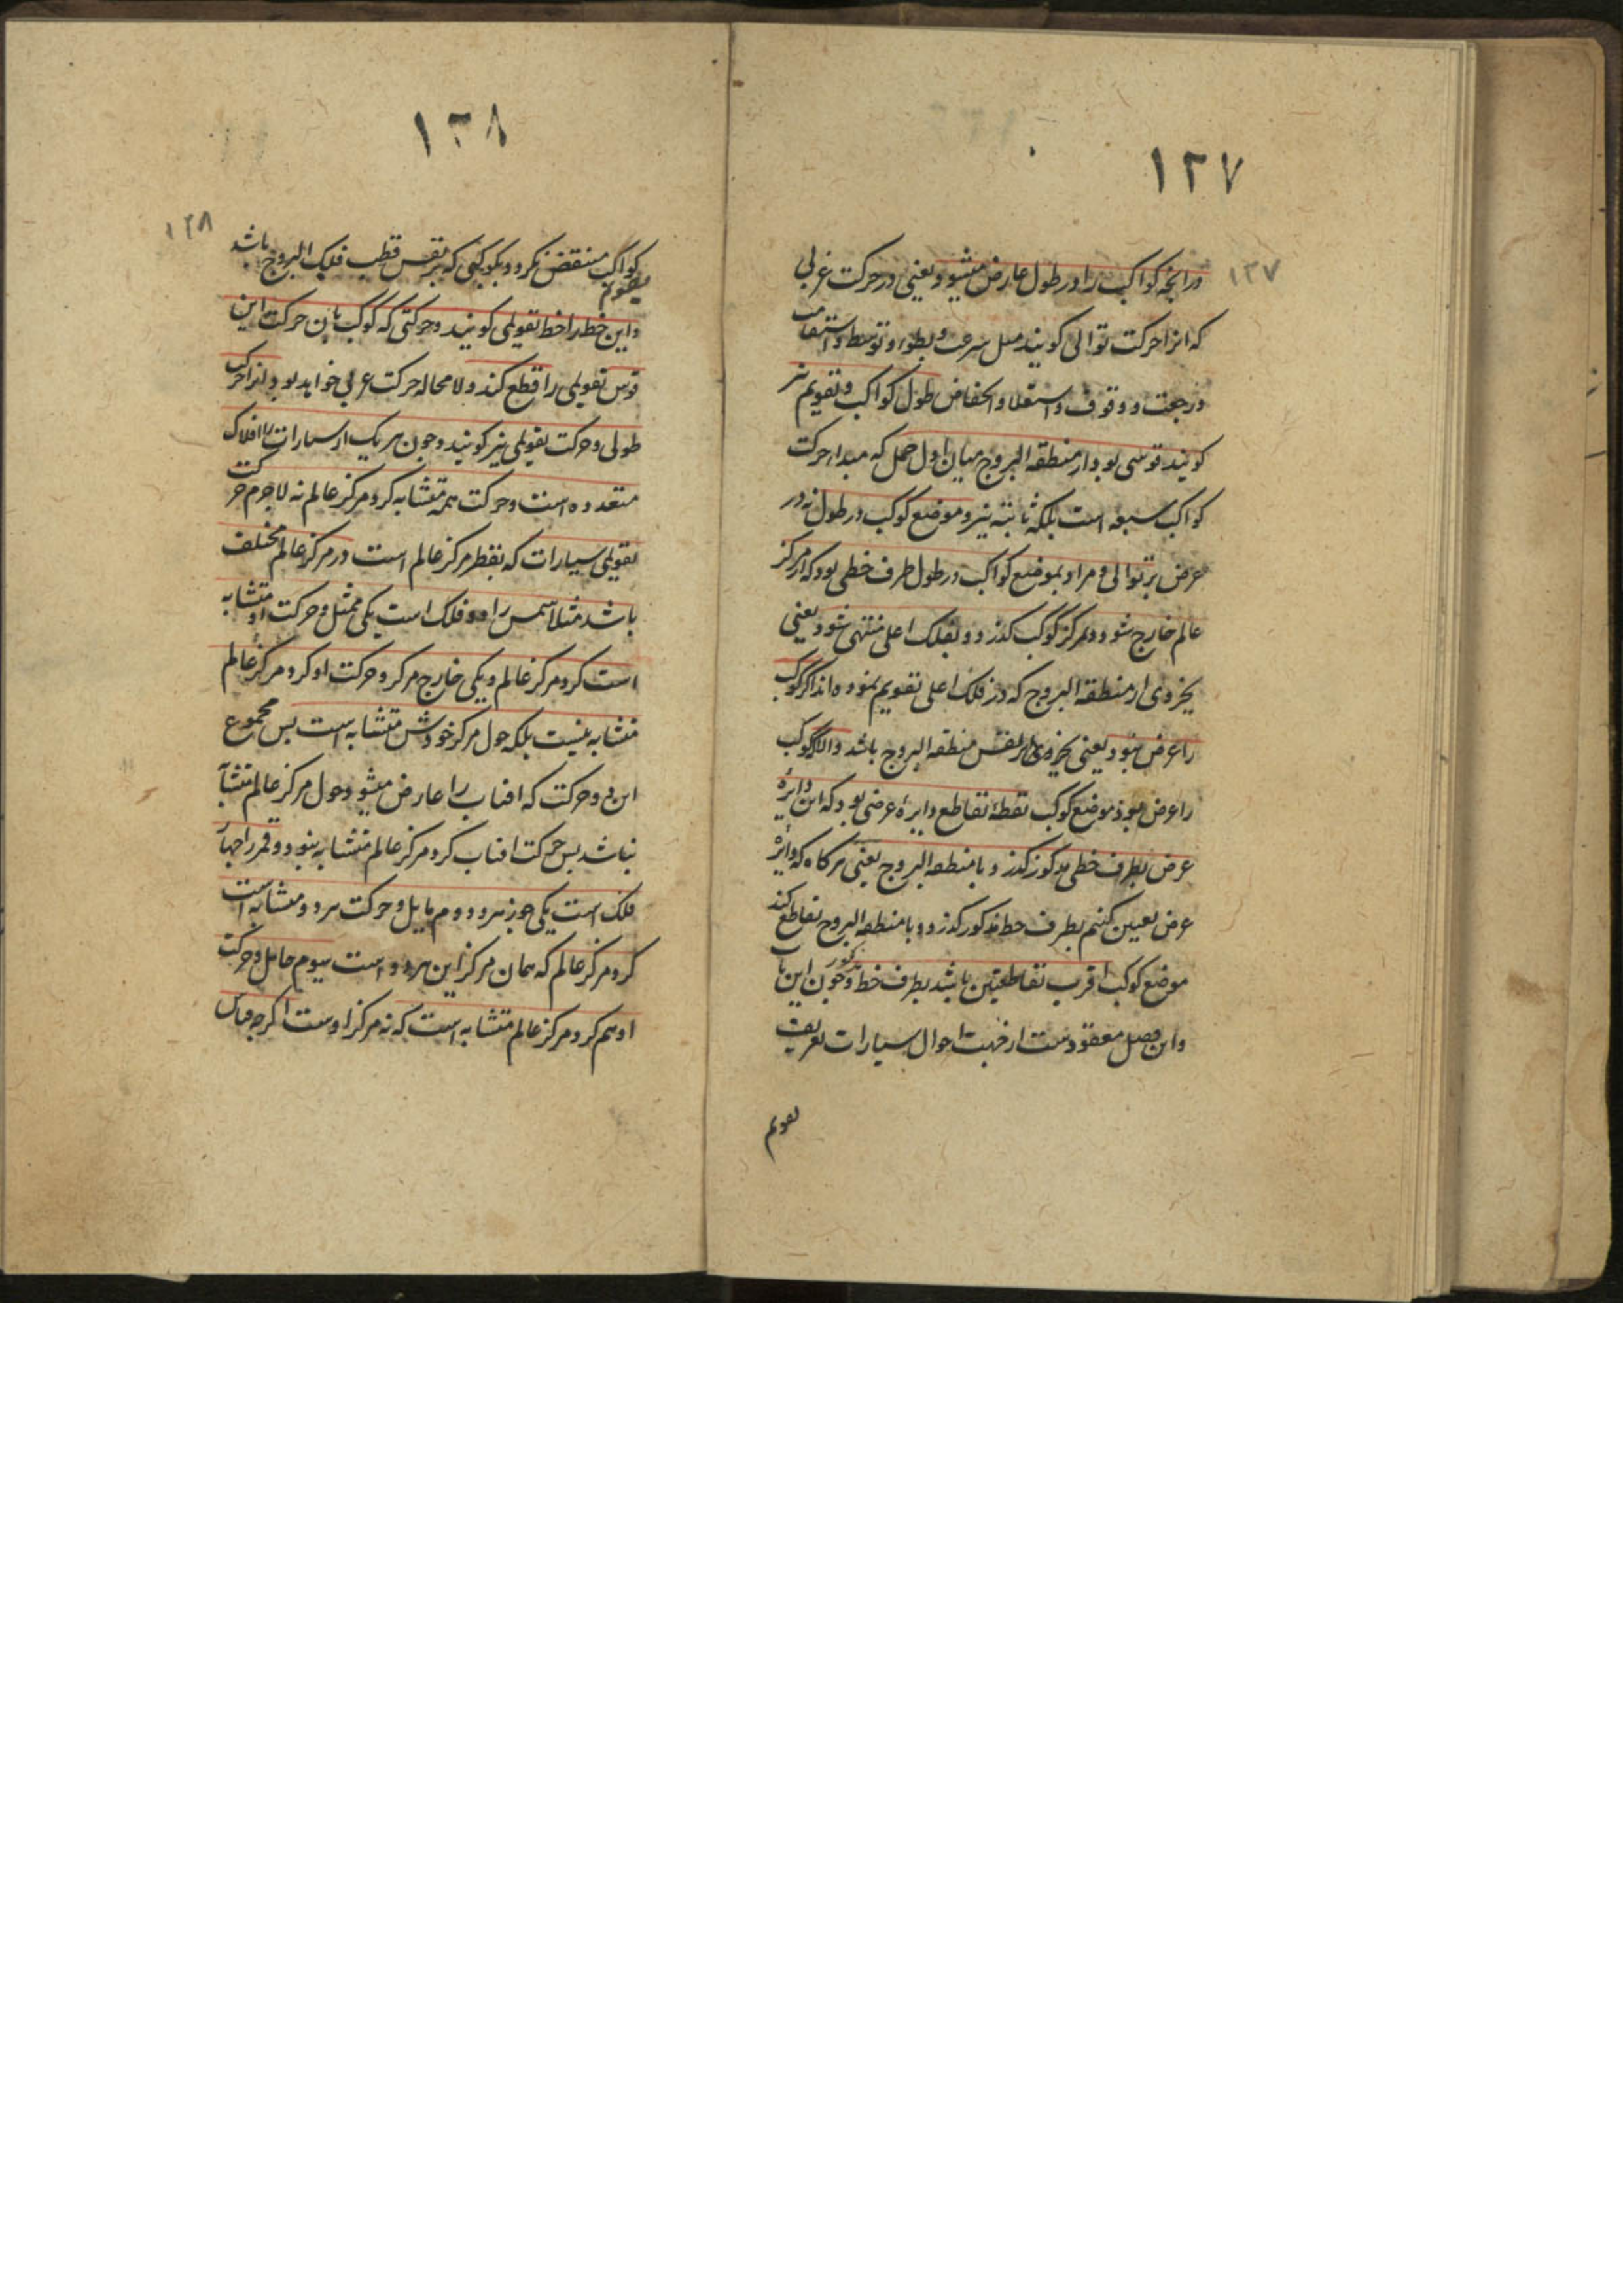 ١٢٧
١٢٧
در آنچه کواکب را در طول عارض میشود یعنی در حرکت غربی
که انرا حرکت توالی کویند مثل سرعت و بطوء و توسط و استقامت
و رجعت و وقوف و استعلا و انخفاض طول کواکب و تقویم نیز
کویند قوسی بود از منطقة البروج میان اول حمل که مبداء حرکت
کواکب سبعه است بلکه ثابته نیز و موضع کوکب در طول نه در
عرض بر توالی و مراد بموضع کواکب در طول طرف خطی بود که از مرکز
عالم خارج شود و بمرکز کوکب کذرد و بفلک اعلی منتهی شود یعنی
بجزوی از منطقة البروج که در فلک اعلی تقویم نموده اند اگر کوکب
را عرض نبود یعنی بجزوی از نفس منطقة البروج باشد و الا اگر کوکب
را عرض بود موضع کوکب نقطهٔ تقاطع دایرهٔ عرضی بود که این دایرهٔ
عرض بطرف خطی مذکور کذرد با منطقة البروج یعنی هرکاه که دایرهٔ
عرض تعیین کنیم بطرف خط مذکور کذرد و با منطقة البروج تقاطع کند
موضع کوکب اقرب تقاطعین باشد بطرف خط مذکور و چون این باب
و این فصل معقودست از جهت احوال سیارات تعریف
تقویم
١٢٨
١٢٨
کواکب منتقض نکردد بکوکبی که بر نفس قطب فلک البروج باشد
تقویم
و این خط را خط تقویمی کویند و حرکتی که کوکب بان حرکت این
قوس تقویمی را قطع کند و لا محاله حرکت غربی خواهد بود انرا حرکت
طولی و حرکت تقویمی نیز کویند و چون هر یک از سیارات را افلاک
متعدده است و حرکت همه متشابه کرد مرکز عالم نه لاجرم حرکت
تقویمی سیارات که بنظر مرکز عالم است در مرکز عالم مختلف
باشد مثلا شمس را دو فلک است یکی ممثل و حرکت او متشابه
است کرد مرکز عالم و یکی خارج مرکز و حرکت او کرد مرکز عالم
متشابه نیست بلکه حول مرکز خودش متشابه است پس مجموع
این دو حرکت که افتاب را عارض میشود حول مرکز عالم متشابه
نباشد پس حرکت افتاب کرد مرکز عالم متشابه نبود و قمر را چهار
فلک است یکی جوزهر و دوم مایل و حرکت هر دو متشابه است
کرد مرکز عالم که همان مرکز این هر دو است سیوم حامل و حرکت
او هم کرد مرکز عالم متشابه است که نه مرکز اوست اگرچه قیاس